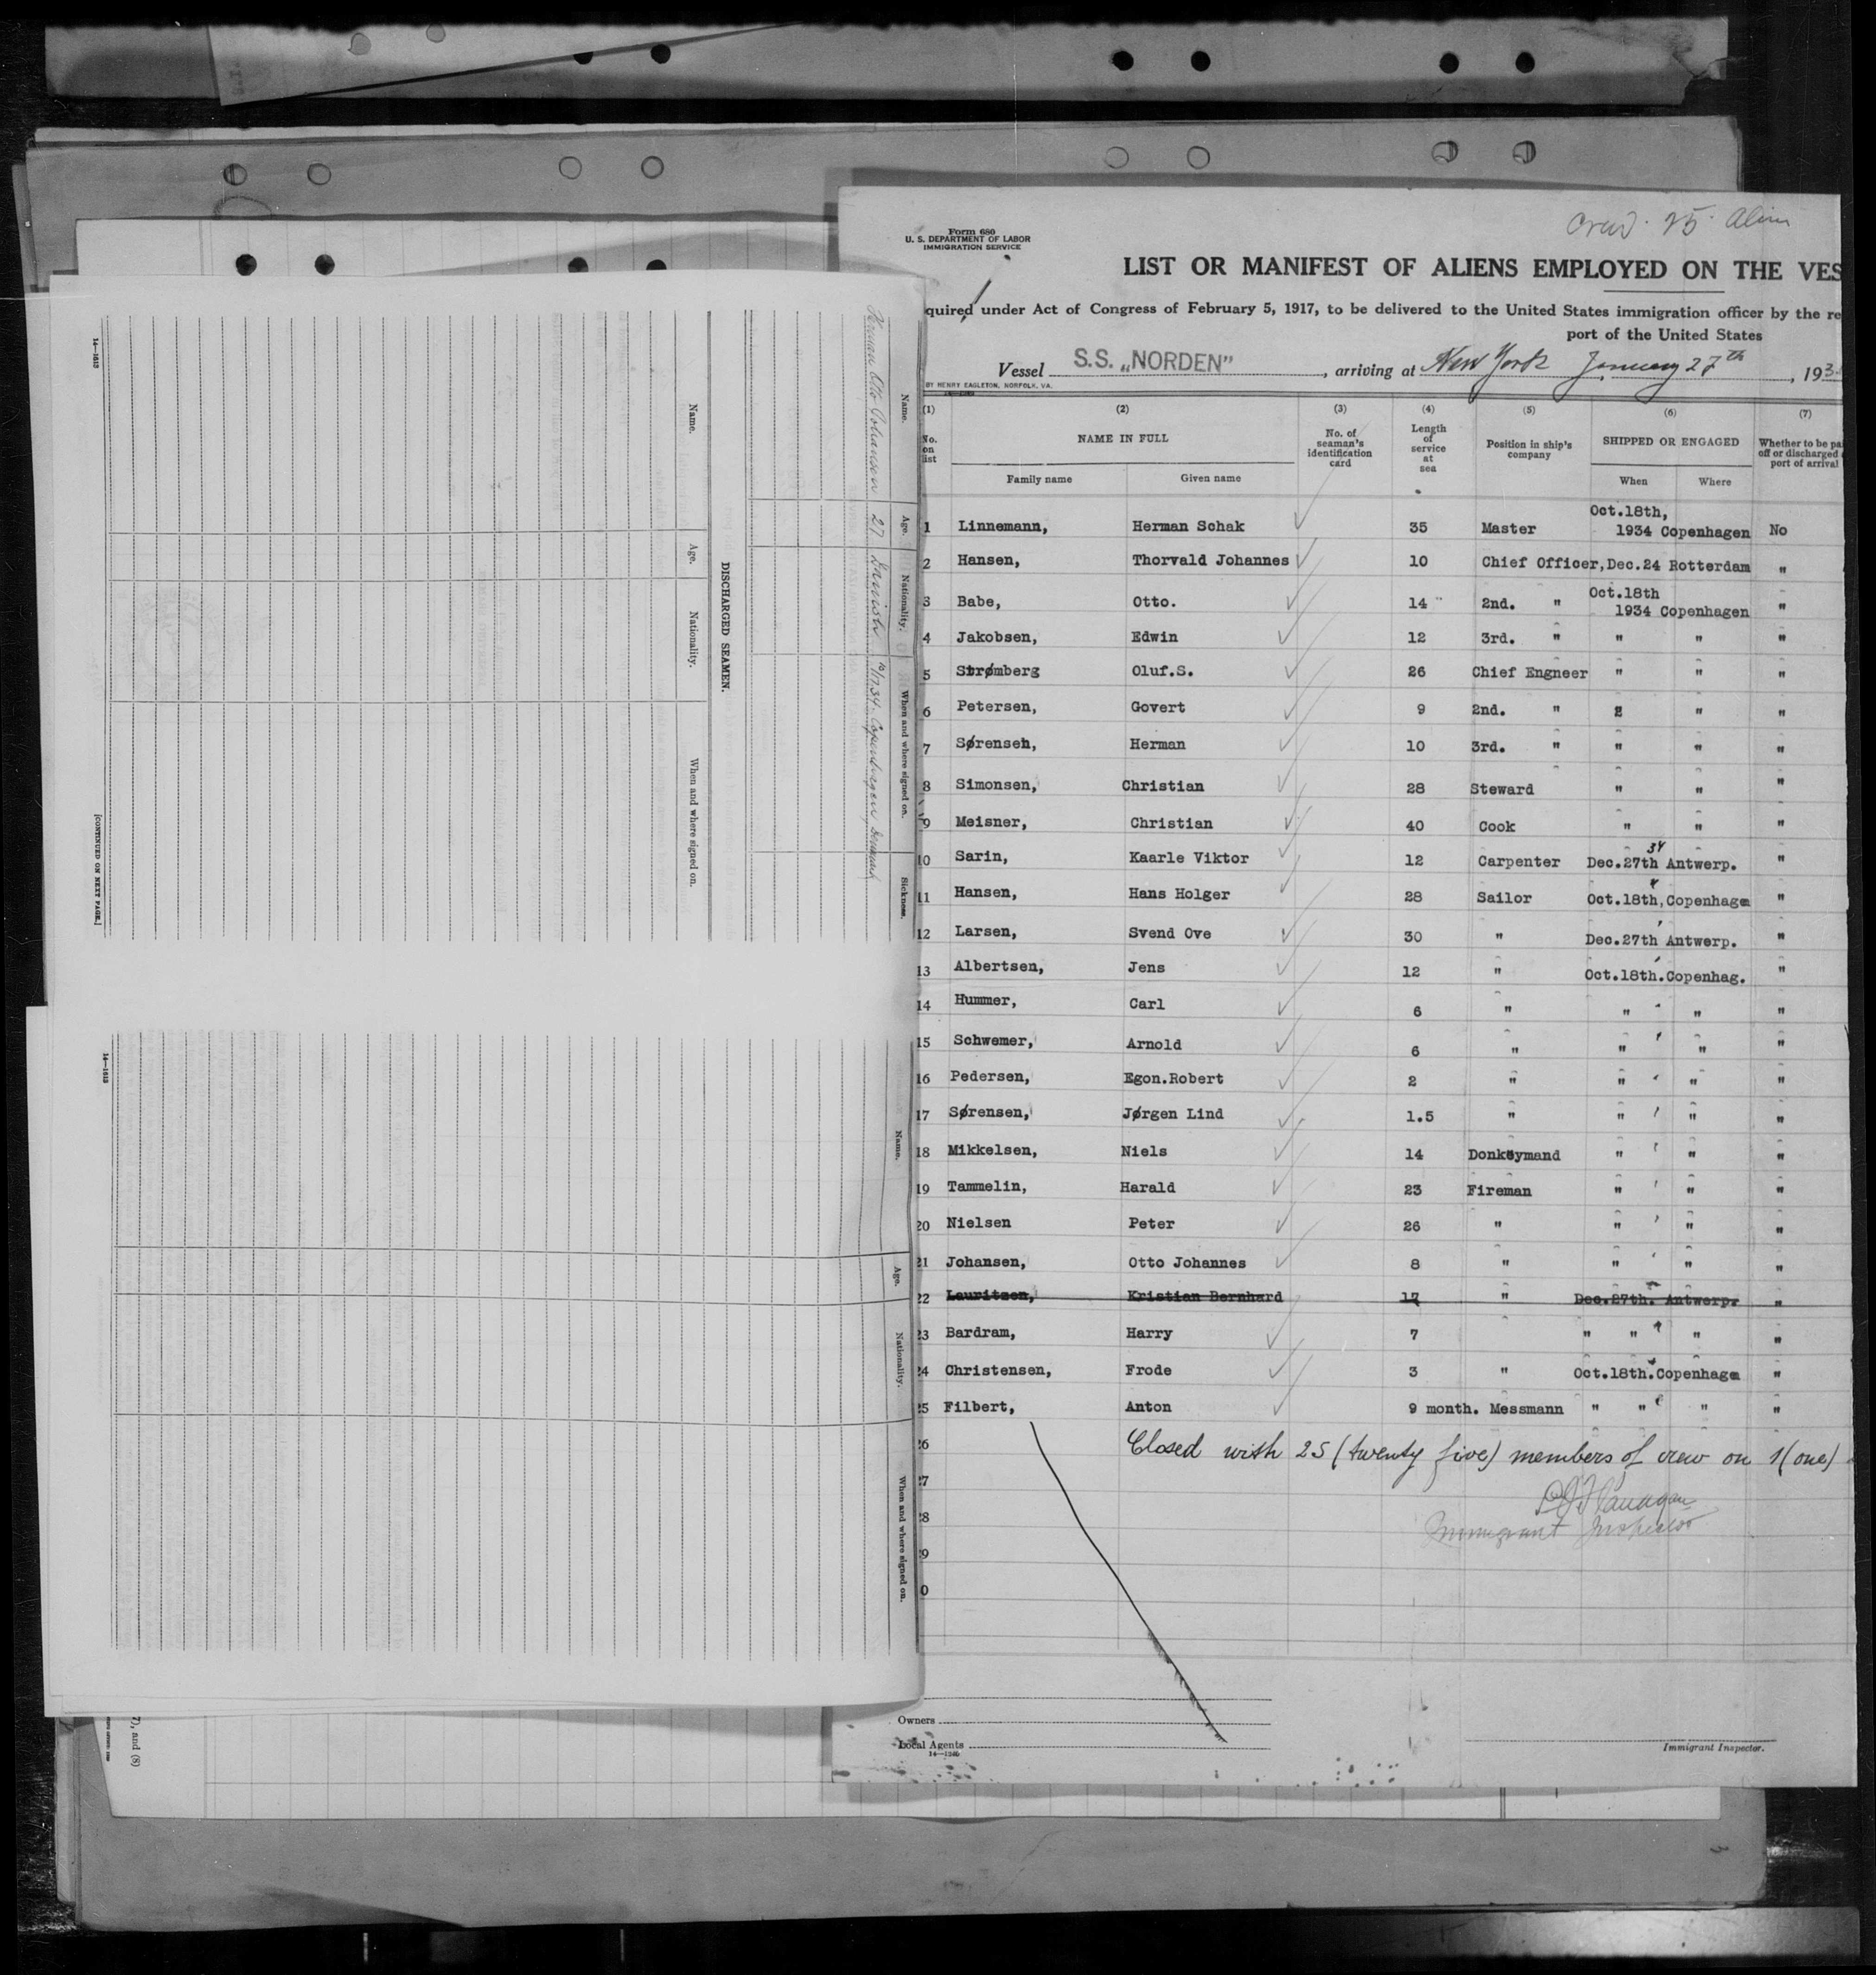 Crew. 25. Alien
Form 680
U. S. DEPARTMENT OF LABOR
IMMIGRATION SERVICE
LIST OR MANIFEST OF ALIENS EMPLOYED ON THE VES
quired under Act of Congress of February 5, 1917, to be delivered to the United States immigration officer by the re
port of the United States
Vessel S.S. „NORDEN” , arriving at New York January 27th , 193
BY HENRY EAGLETON, NORFOLK, VA.
(1) (2) (3) (4) (5) (6) (7)
No. on list NAME IN FULL No. of seaman's identification card Length of service at sea Position in ship's company SHIPPED OR ENGAGED Whether to be pa off or discharged port of arrival
Family name Given name When Where
1 Linnemann, Herman Schak 35 Master Oct.18th, 1934 Copenhagen No
2 Hansen, Thorvald Johannes 10 Chief Officer, Dec.24 Rotterdam "
3 Babe, Otto. 14 2nd. " Oct.18th 1934 Copenhagen "
4 Jakobsen, Edwin 12 3rd. " " " "
5 Strømberg Oluf.S. 26 Chief Engneer " " "
6 Petersen, Govert 9 2nd. " " " "
7 Sørensen, Herman 10 3rd. " " " "
8 Simonsen, Christian 28 Steward " " "
9 Meisner, Christian 40 Cook " " "
10 Sarin, Kaarle Viktor 12 Carpenter Dec.27th 34 Antwerp. "
11 Hansen, Hans Holger 28 Sailor Oct.18th, Copenhagen "
12 Larsen, Svend Ove 30 " Dec.27th Antwerp. "
13 Albertsen, Jens 12 " Oct.18th. Copenhag. "
14 Hummer, Carl 6 " " " "
15 Schwemer, Arnold 6 " " " "
16 Pedersen, Egon.Robert 2 " " " "
17 Sørensen, Jørgen Lind 1.5 " " " "
18 Mikkelsen, Niels 14 Donkeymand " " "
19 Tammelin, Harald 23 Fireman " " "
20 Nielsen Peter 26 " " " "
21 Johansen, Otto Johannes 8 " " " "
22 Lauritzen, Kristian Bernhard 17 " Dec.27th. Antwerp. "
23 Bardram, Harry 7 " " " " "
24 Christensen, Frode 3 " Oct.18th. Copenhagen "
25 Filbert, Anton 9 month. Messmann " " " "
26 Closed with 25 (twenty five) members of crew on 1 (one)
27
28 Immigrant Inspector
29
0
Owners
Local Agents
14—1240
Immigrant Inspector.
Name. Age. Nationality. When and where signed on. Sickness.
Herman Otto Johanson 27 Danish 10/17.34. Copenhagen Denmark
DISCHARGED SEAMEN.
Name. Age. Nationality. When and where signed on.
14—1513
[CONTINUED ON NEXT PAGE.]
Name. Age. Nationality. When and where signed on.
14—1513
7), and (8)